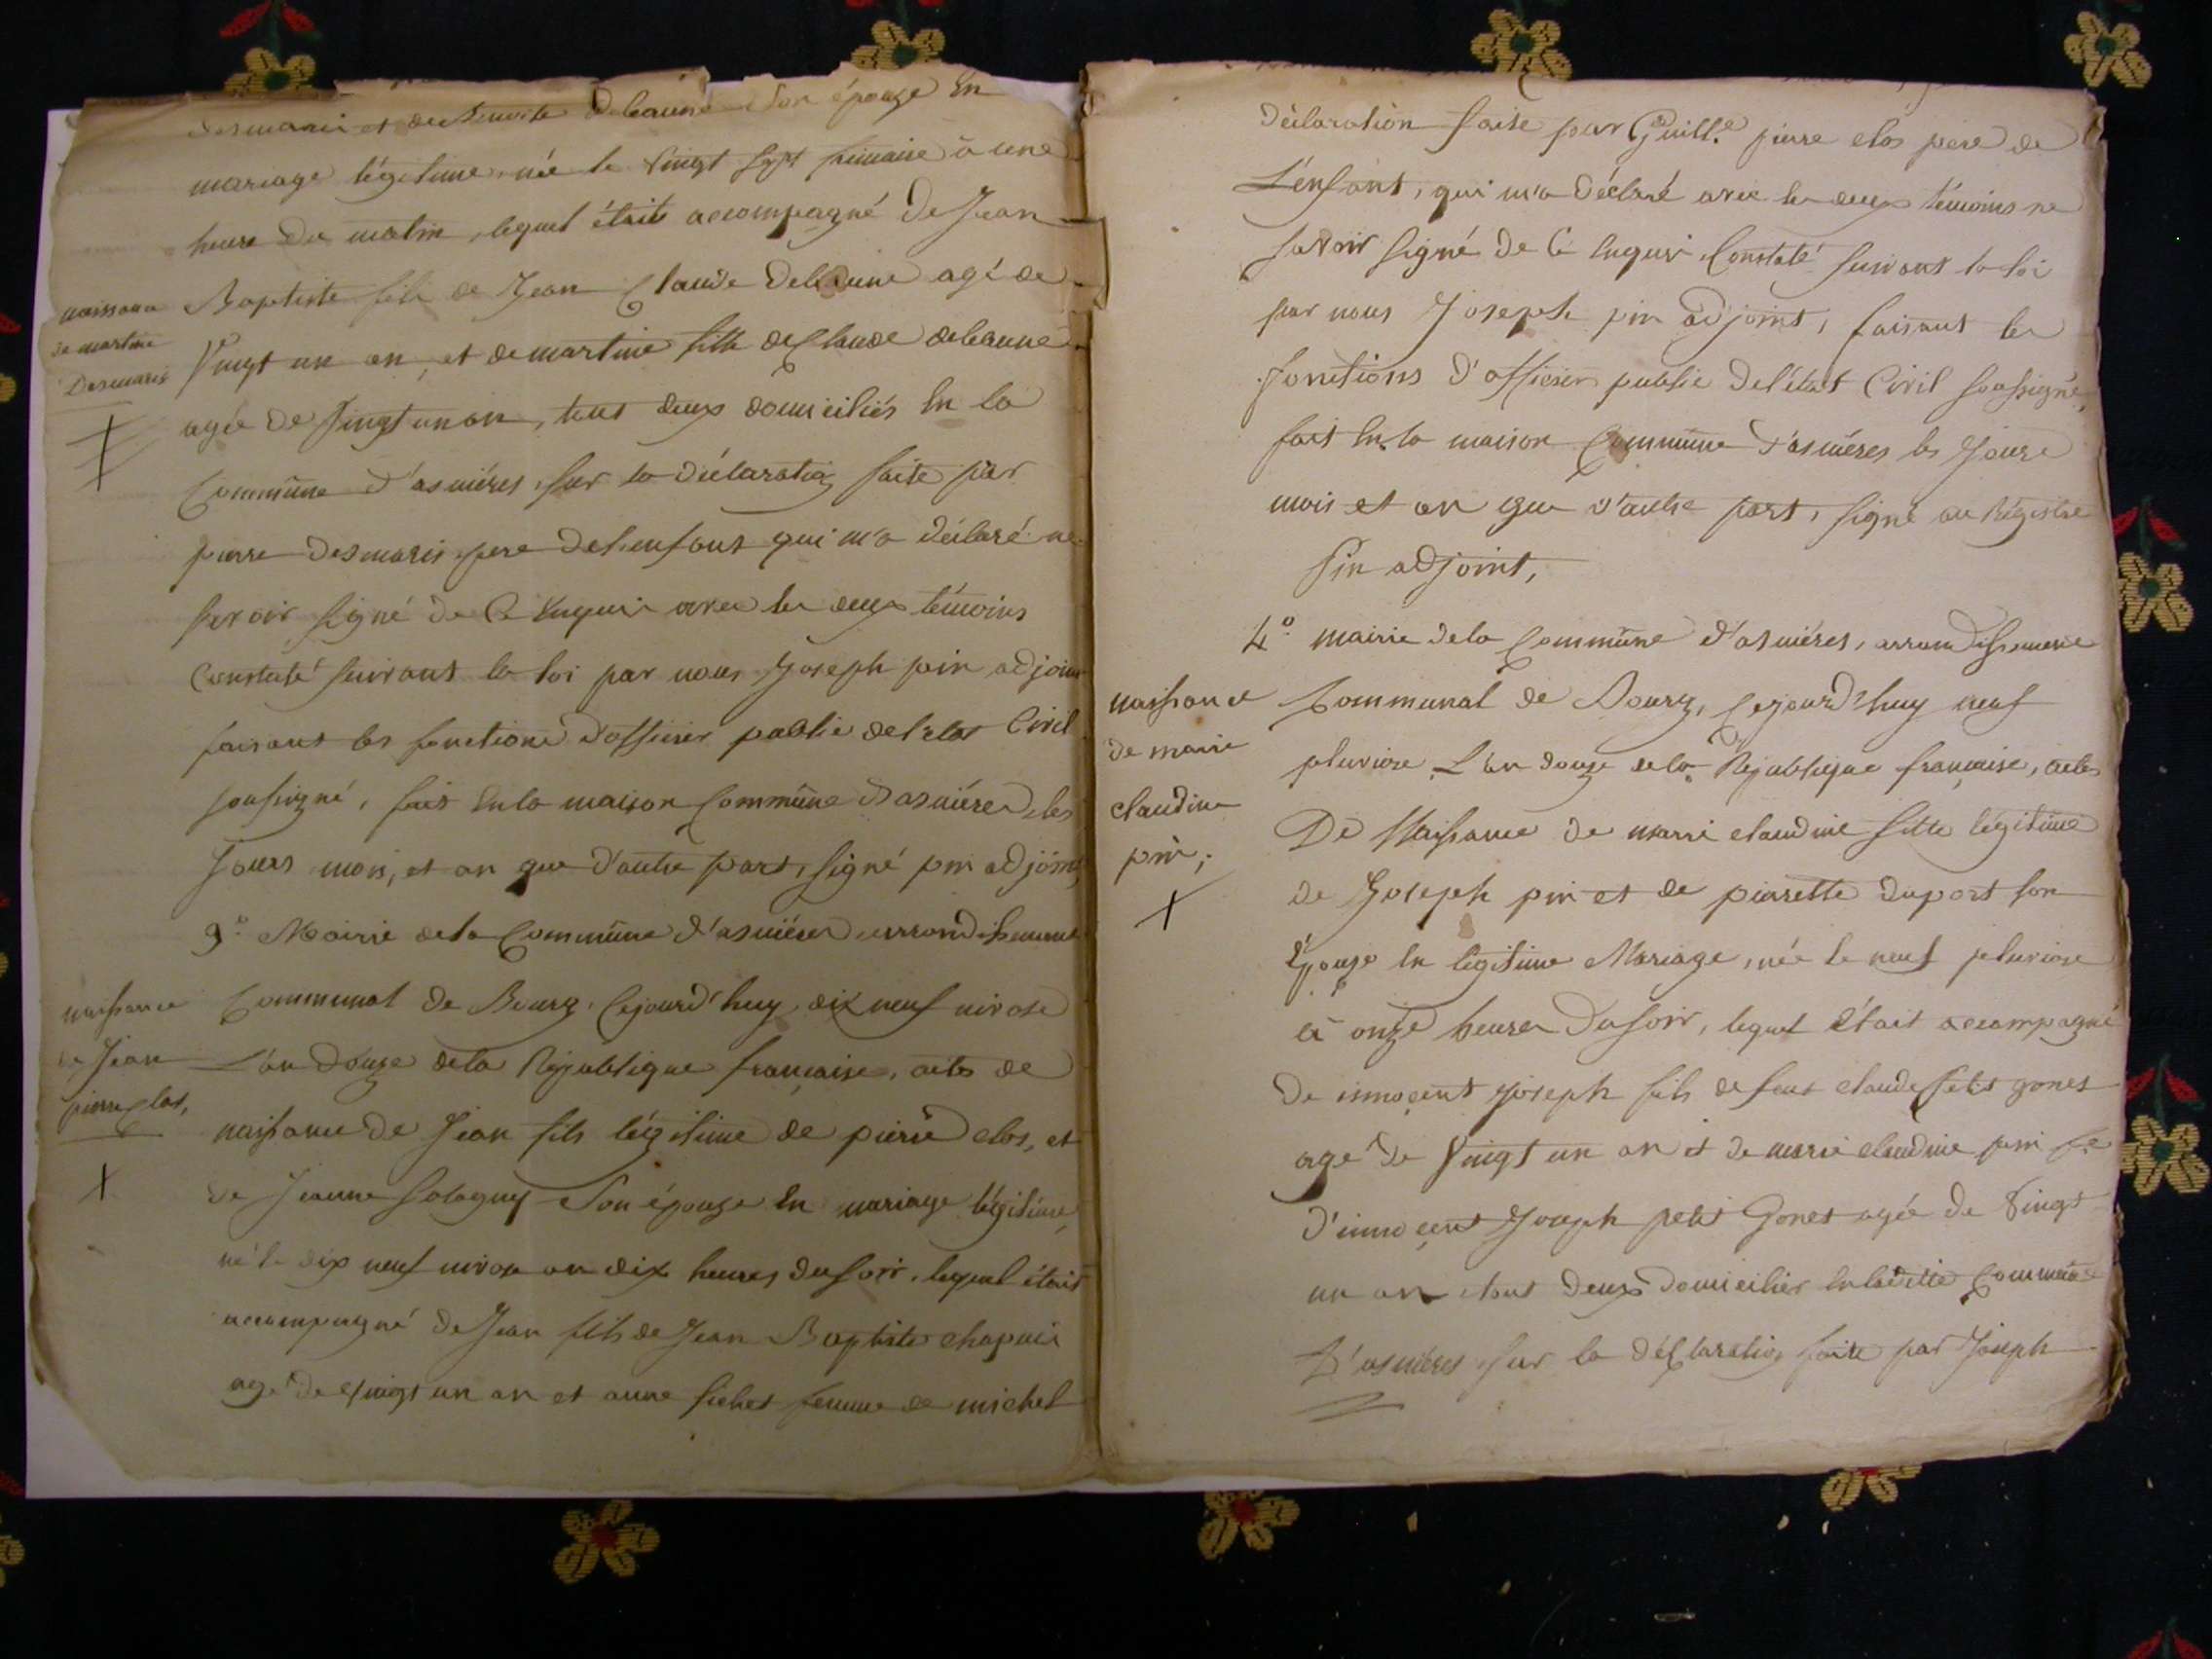 desmaris et de Benoite debaune son épouze En
mariage légitime née le vingt sept frimaire à une
heure du matin, lequel était accompagné de Jean
Baptiste fils de Jean Claude debaune agé de
naissance
de martine
Desmaris
Vingt un an, et de martine fille de Claude debaune
agée de vingt un an, tous deux domiciliés En la
Commune d'asniéres, sur la déclaration faite par
pierre desmaris pere de lenfant qui m'a déclaré ne
savoir signé de Ce Enquis avec les deux témoins
Constaté suivant la loi par nous Joseph pin adjoint
faisant les fonctions d'officier public de l'etat Civil
soussigné, fait En la maison Commune d'asniéres, les
Jours mois, et an que d'autre part, signé pin adjoint,
3.º Mairie de la Commune d'asniéres arrondissement
naissance
de Jean
pierre Clos,
Communal de Bourg, Cejourd'huy dix neuf nivose
L'an douze de la République française, acte de
naissance de Jean fils légitime de pierre clos, et
de Jeanne Sologny Son épouze En mariage légitime,
né le dix neuf nivose an dix heures du soir, lequel était
accompagné de Jean fils de Jean Baptiste chapuis
agé de vingt un an et anne fichet femme de michel
déclaration faite par pierre clos pere de
L'enfant, qui m'a déclaré avec les deux témoins ne
savoir signé de Ce Enquis, Constaté suivant la loi
par nous Joseph pin adjoint, faisant les
fonctions d'officier public de l'état Civil soussigné,
fait En la maison Commune d'asniéres les Jours
mois et an que d'autre part, signé au Régistre
Pin adjoint,
4.º mairie de la Commune d'asniéres, arrondissement
naissance
de marie
claudine
pin;
Communal de Bourg, Cejourd'huy neuf
pluviose L'an douze de la République française, acte
De Naissance de marie claudine fille légitime
de Joseph pin et de pierrette duport son
Epouze En légitime Mariage, née le neuf pluviose
à onze heures du soir, lequel était accompagné
de innoçent Joseph fils de feut claude petit gonet
agé de vingt un an et de marie claudine pin fe
d'innoçent Joseph petit Gonet agée de vingt
un an tout deux domicilier En laditte Commune
D'asniéres sur la déclaration faite par Joseph